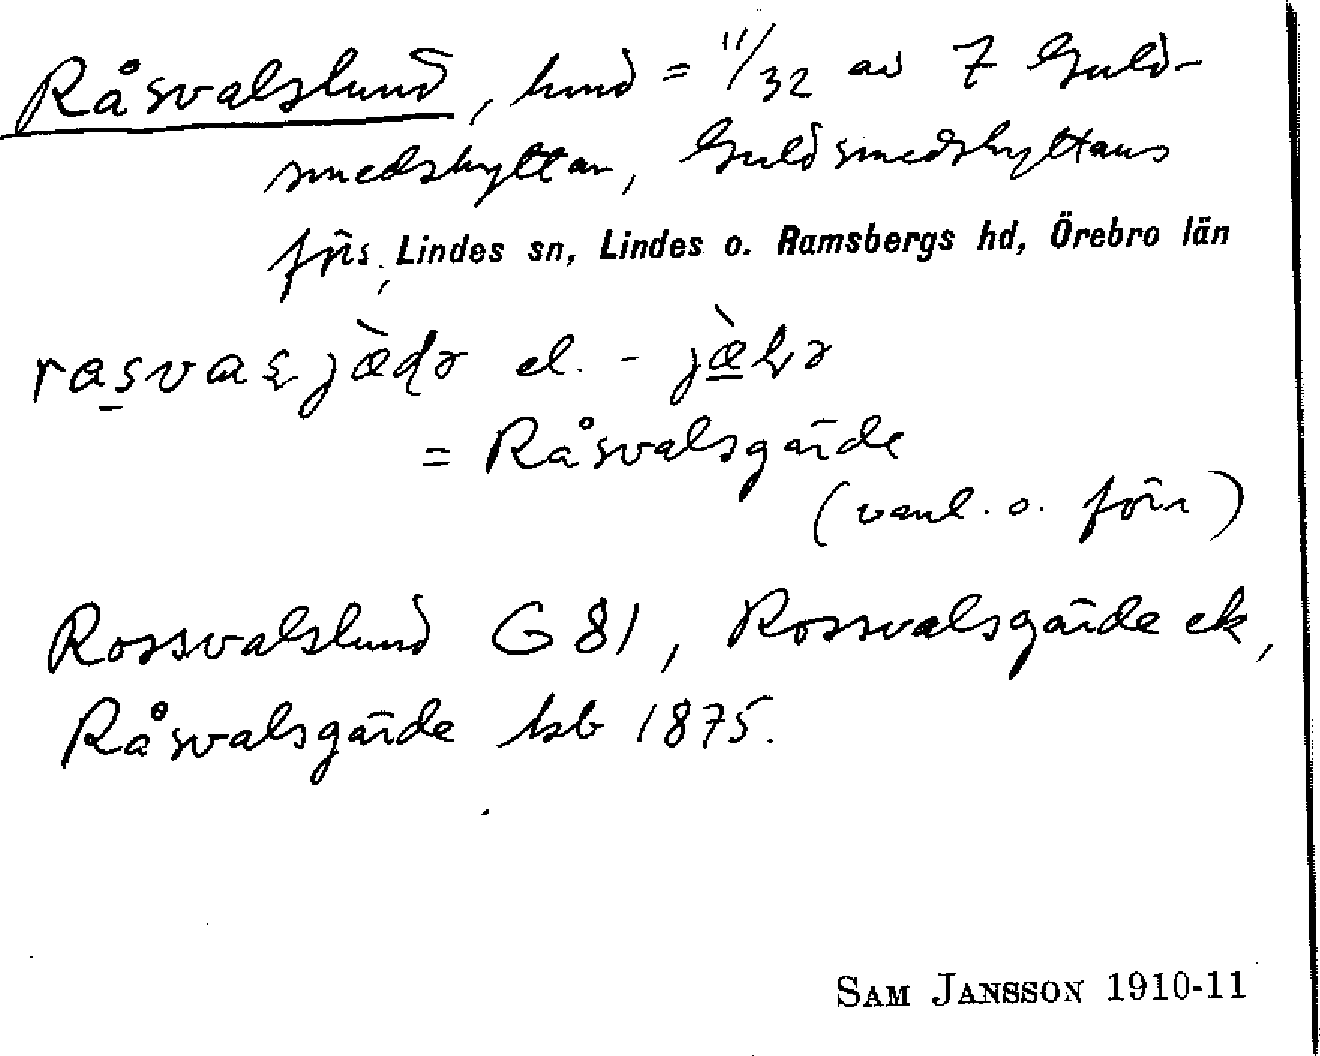 Råsvalslund, hmd = 11/32 av 7 Guld-
smedshyttan, Guldsmedshyttans
förs, Lindes sn, Lindes o. Ramsbergs hd, Örebro län
el. -
= Råsvalsgärde
(vanl. o. förr)
Rossvalslund G 81, Rossvalsgärde ek,
Råsvalsgärde hsb 1875.
SAM JANSSON 1910-11